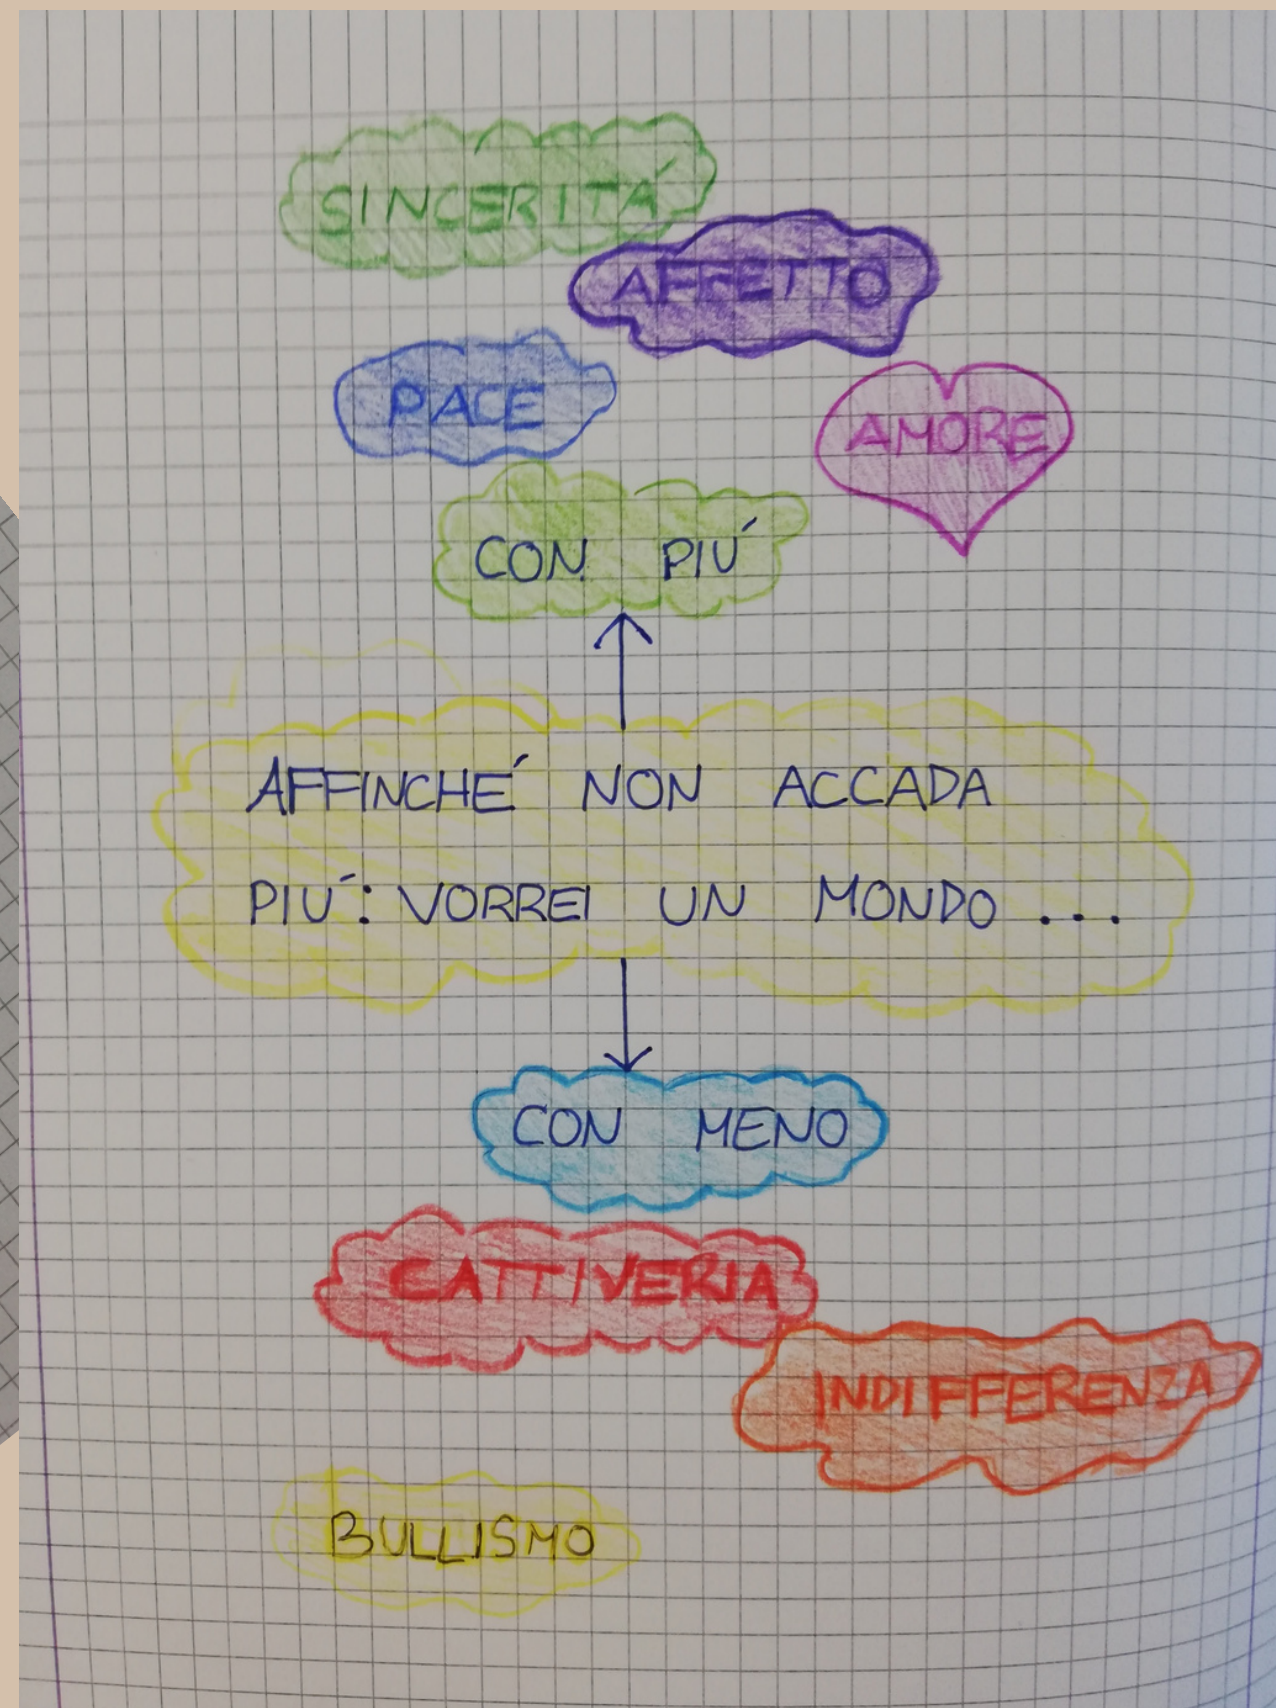 SINCERITÁ
AFFETTO
PACE
AMORE
CON PIÚ
AFFINCHÉ NON ACCADA
PIÚ: VORREI UN MONDO ...
CON MENO
CATTIVERIA
INDIFFERENZA
BULLISMO